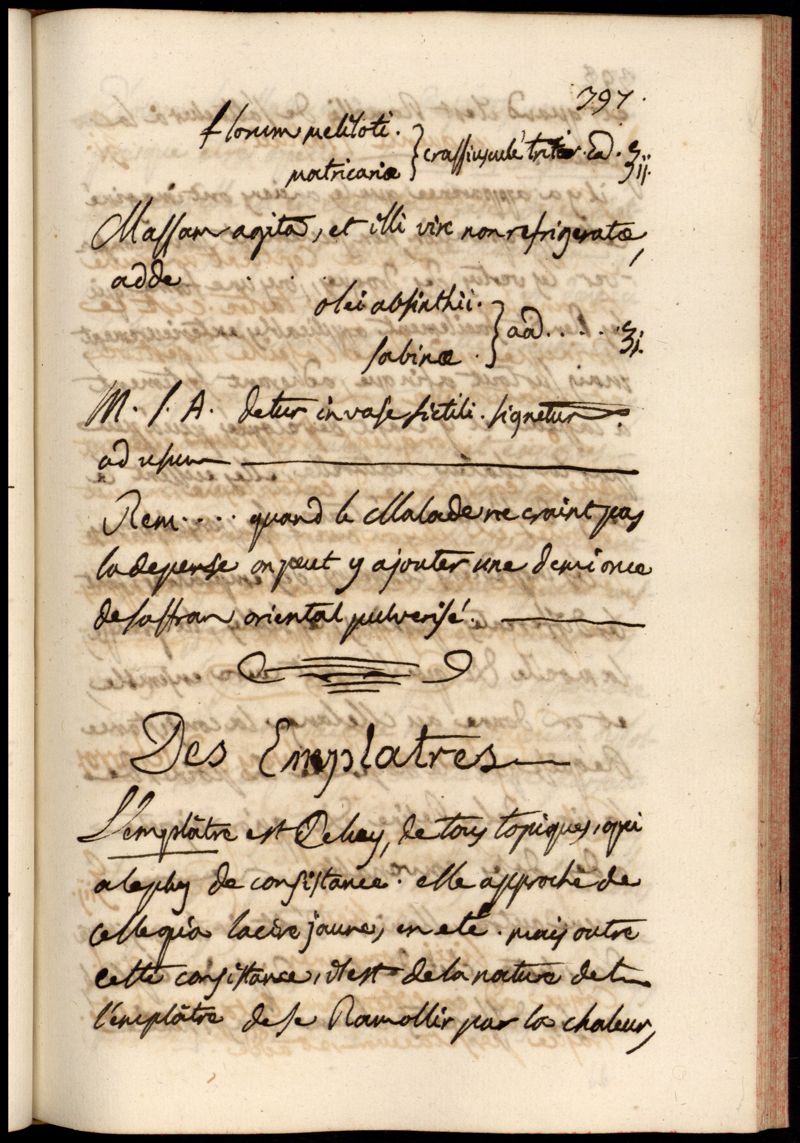 397.
florum meliloti.
matricariæ } crassiuscule trit. aā. ʒij.
Massam agita, et illi vix non refrigeratæ,
adde
olei absinthii.
sabinæ . } aā. . . . . ʒi.
M. S. A. detur in vase fictili. signetur.
ad usum
Rem. . . . quand le Malade ne craint pas
la depense on peut y ajouter une demi once
de saffran oriental pulverisé.
Des Emplatres
L'emplâtre est Celuy, de tous topiques, qui
a le plus de consistance. elle approche de
celle qu'a la cire jaune, en eté. mais outre
cette consistance, il est de la nature de
l'emplâtre de se Ramollir par la chaleur,